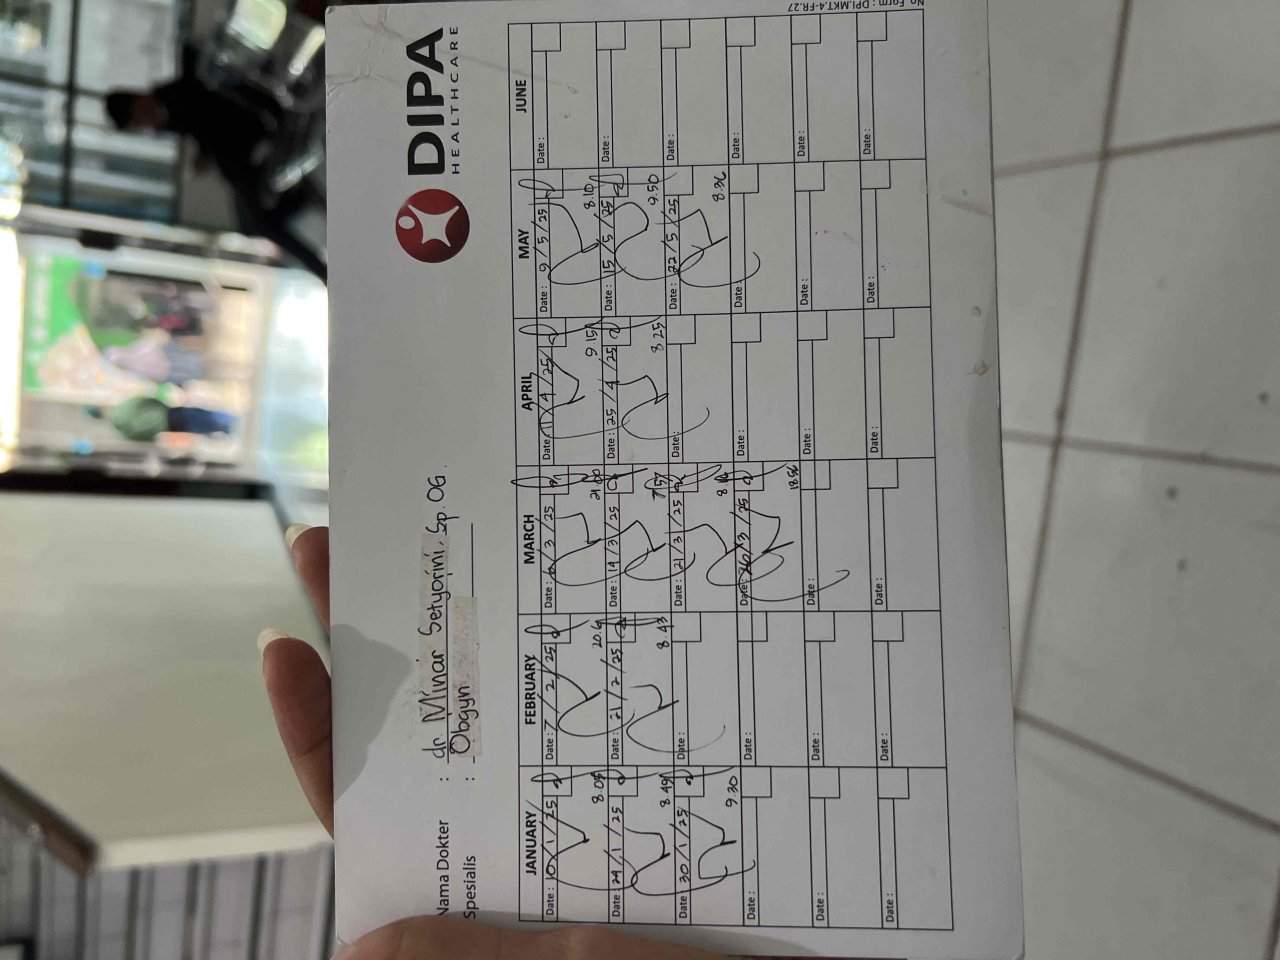 DIPA
HEALTHCARE
Nama Dokter : dr. Minar Setyorini, Sp. OG.
Spesialis : Obgyn
JANUARY FEBRUARY MARCH APRIL MAY JUNE
Date: 10/1/25 Date: 7/2/25 Date: 6/3/25 Date: 11/4/25 Date: 9/5/25 Date:
8.05 21.00 9.15 8.10
Date: 24/1/25 Date: 21/2/25 Date: 14/3/25 Date: 25/4/25 Date: 15/5/25 Date:
8.49 8.43 7.57 8.25 9.50
Date: 30/1/25 Date: Date: 21/3/25 Date: Date: 22/5/25 Date:
9.30 8.36
Date: Date: Date: 26/3/25 Date: Date: Date:
18.56
Date: Date: Date: Date: Date: Date:
Date: Date: Date: Date: Date: Date:
No Form : DPI.MKT.4-FR.27